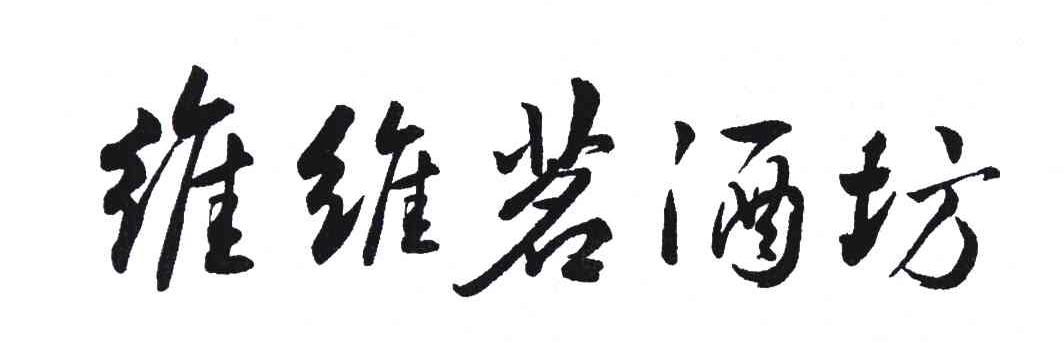 维维茗酒坊